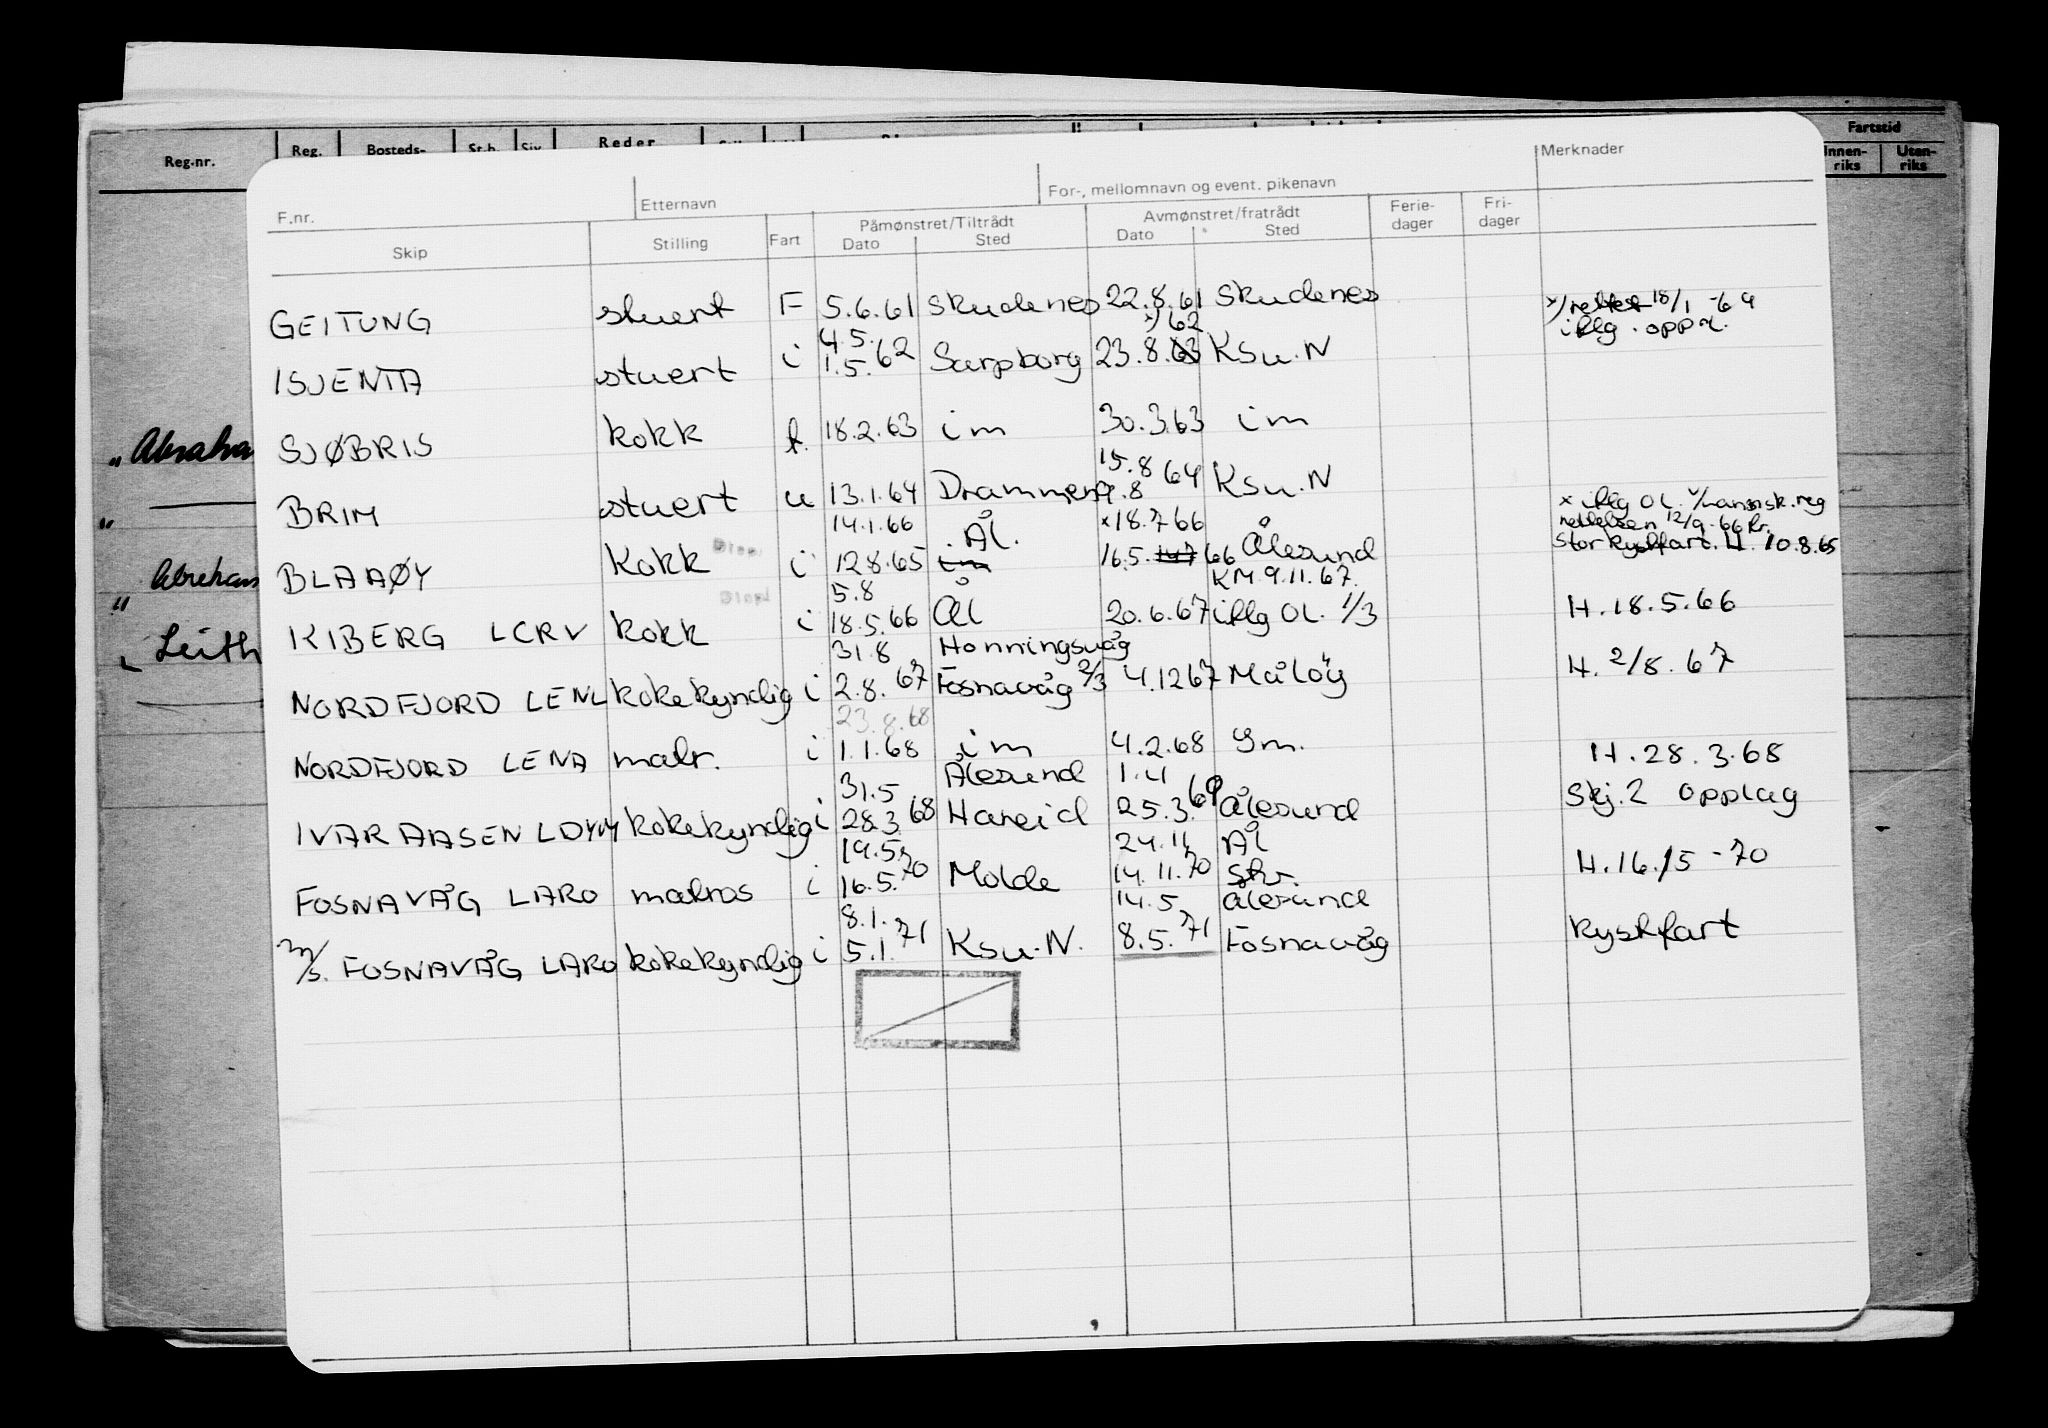 Reg.nr. Reg. Bosteds- St.b. Siv. Reder Fartstid
Innen-riks Uten-riks
F.nr. Etternavn For-, mellomnavn og event. pikenavn Merknader
Skip Stilling Fart Påmønstret/Tiltrådt Avmønstret/fratrådt Ferie-dager Fri-dager
Dato Sted Dato Sted
GEITUNG stuert F 5.6.61 Skudenes 22.8.61 Skudenes x/ rettet 18/1 -64
iflg. oppg.
4.5. x/ 62
ISJENTA stuert i 1.5.62 Sarpborg 23.8.63 Ksu.N
SJØBRIS kokk f. 18.2.63 im 30.3.63 im
15.8
BRIM stuert u 13.1.64 Drammen 9.8 64 Ksu.N
14.1.66 Ål. x18.7 66 x iflg OL. v/mannsk.reg
rettelsen 12/9-66 kr.
BLAAØY Kokk i 12.8.65 im 16.5. 147 66 Ålesund Stor kystfart. H. 10.8.65
5.8 KM.9.11.67.
KIBERG LCRV kokk i 18.5.66 Ål 20.6.67 iflg OL. 1/3 H.18.5.66
31.8 Honningsvåg
NORDFJORD LENL kokekyndig i 2.8.67 Fosnavåg 2/3 4.12 67 Måløy H. 2/8.67
23.8.68
NORDFJORD LENA matr. i 1.1.68 im 4.2.68 Im. H.28.3.68
31.5 Ålesund 1.4
IVAR AASEN LDYM kokekyndig i 28.3.68 Hareid 25.3.69 Ålesund Skj.2 opplag
19.5. 24.11 Ål
FOSNAVÅG LARO matros i 16.5.70 Molde 14.11.70 Skr. H.16./5 -70
8.1. 14.5 Ålesund
m/s. FOSNAVÅG LARO kokekyndig i 5.1.71 Ksu.N. 8.5.71 Fosnavåg kystfart
" Abraha
"
" Abraham
" Leith